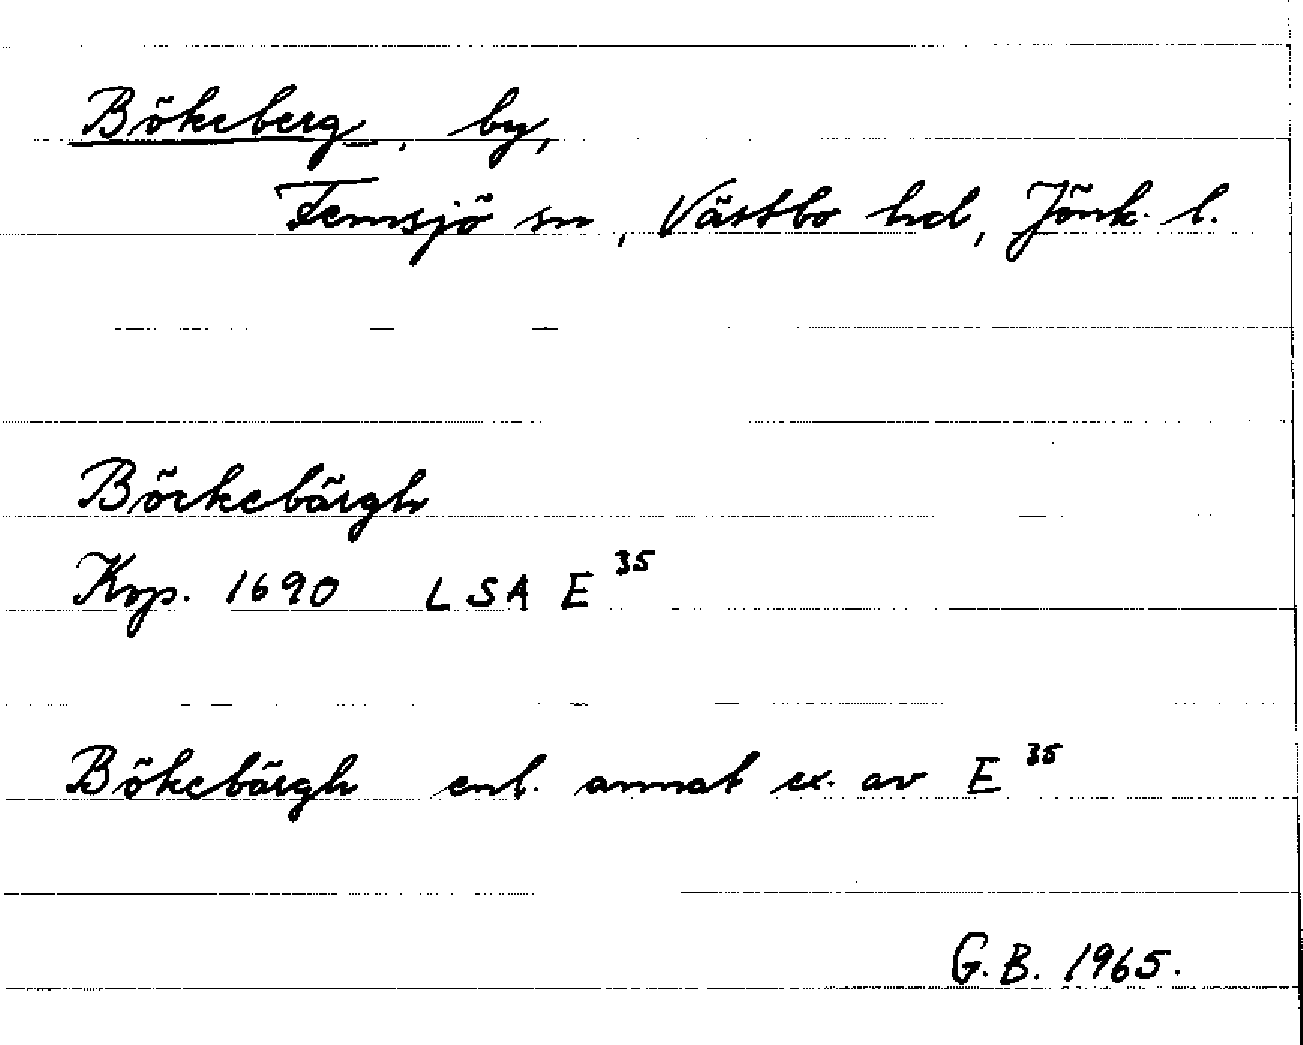 Bökeberg, by,
Femsjö sn, Västbo hd, Jönk. l.
Böckebärgh
Krp. 1690 LSA E 35
Bökebärgh enl. annat ex. av E 35
G.B. 1965.